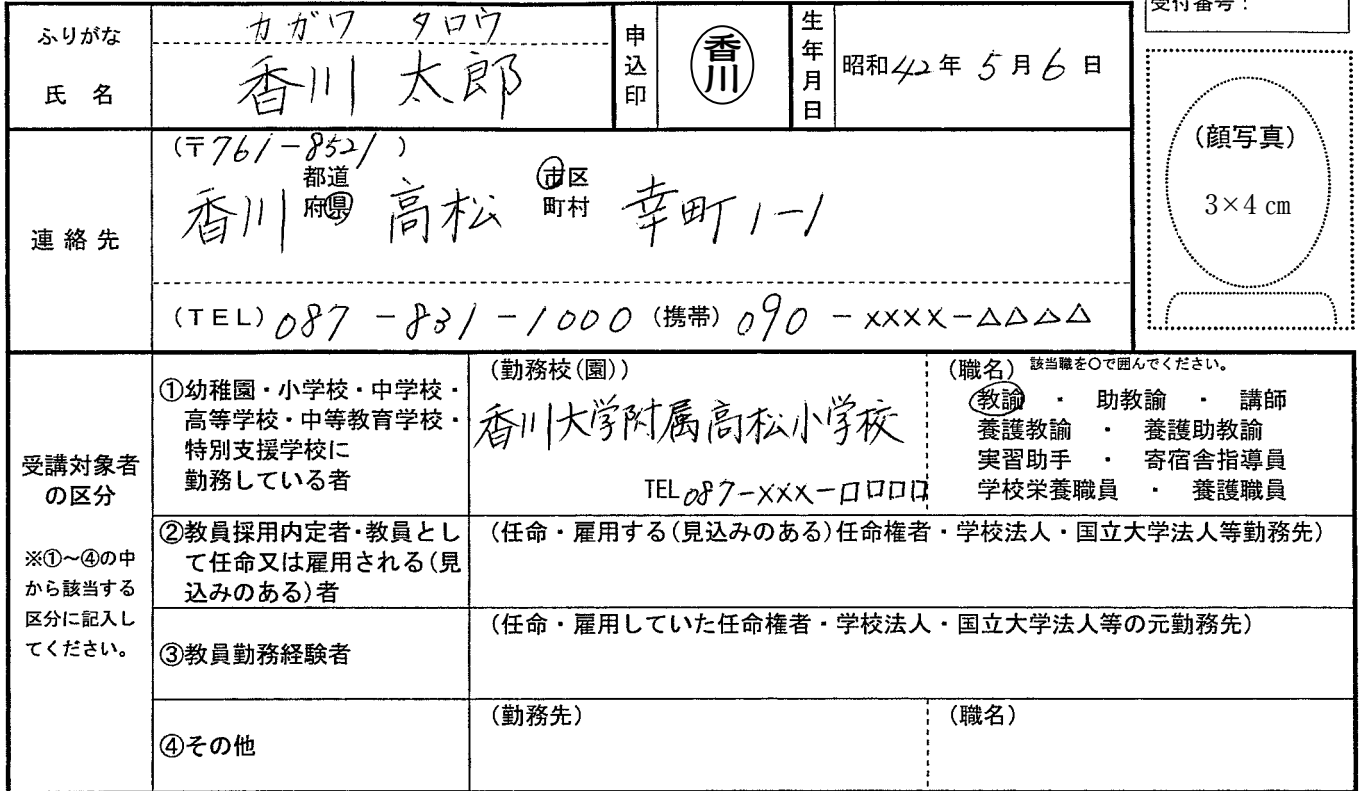 受付番号：
ふりがな
カガワ タロウ
氏 名
香川 太郎
申込印
香川
生年月日
昭和42年 5月 6日
(顔写真)
3×4 cm
連 絡 先
(〒761-8521)
香川 都道府県 高松 市区町村 幸町1-1
(TEL) 087-831-1000 (携帯) 090-××××-△△△△
受講対象者
の区分
※①～④の中
から該当する
区分に記入し
てください。
①幼稚園・小学校・中学校・
高等学校・中等教育学校・
特別支援学校に
勤務している者
(勤務校(園))
香川大学附属高松小学校
TEL 087-×××-□□□□
(職名) 該当職を○で囲んでください。
教諭 ・ 助教諭 ・ 講師
養護教諭 ・ 養護助教諭
実習助手 ・ 寄宿舎指導員
学校栄養職員 ・ 養護職員
②教員採用内定者・教員とし
て任命又は雇用される(見
込みのある)者
(任命・雇用する(見込みのある)任命権者・学校法人・国立大学法人等勤務先)
③教員勤務経験者
(任命・雇用していた任命権者・学校法人・国立大学法人等の元勤務先)
④その他
(勤務先)
(職名)